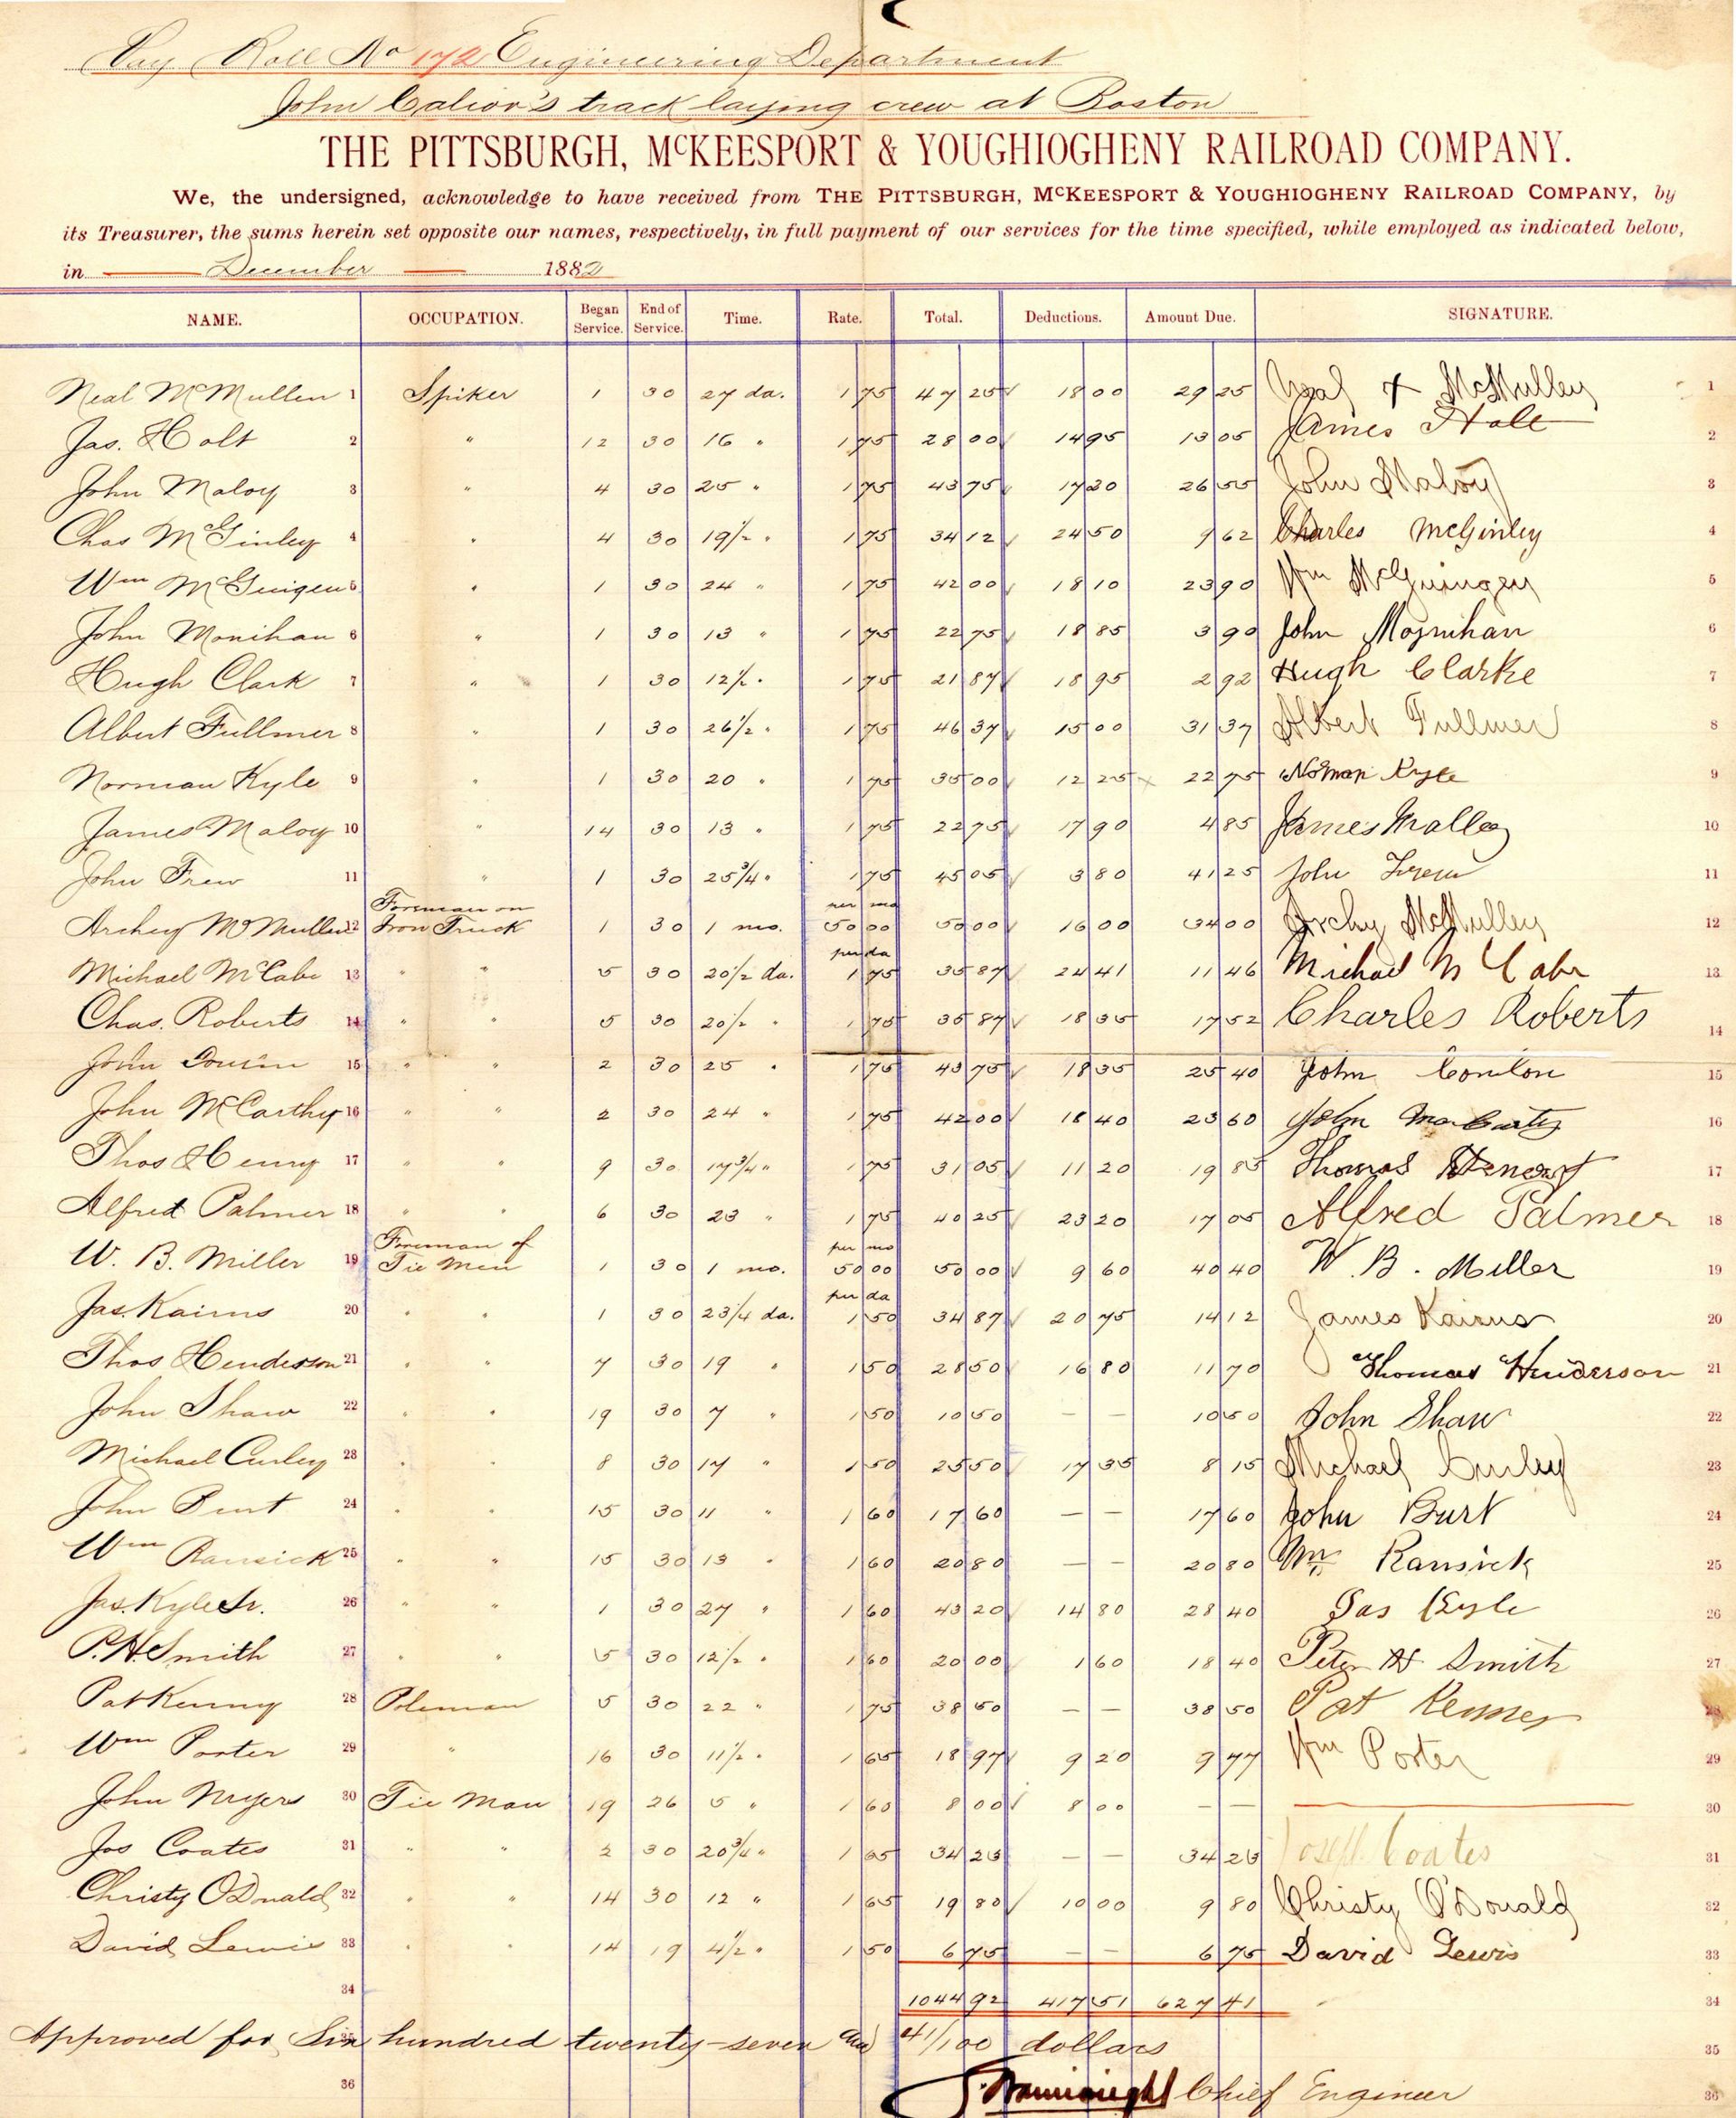 Pay Roll No 172 Engineering Department
John Calior's track laying crew at Boston
THE PITTSBURGH, McKEESPORT & YOUGHIOGHENY RAILROAD COMPANY.
We, the undersigned, acknowledge to have received from THE PITTSBURGH, McKEESPORT & YOUGHIOGHENY RAILROAD COMPANY, by
its Treasurer, the sums herein set opposite our names, respectively, in full payment of our services for the time specified, while employed as indicated below,
in December 1882
NAME. OCCUPATION. Began Service. End of Service. Time. Rate. Total. Deductions. Amount Due. SIGNATURE.
Neal McMullen 1 Spiker 1 30 27 da. 1 75 47 25 18 00 29 25 Neal + McMulley 1
Jas. Holt 2 " 12 30 16 " 1 75 28 00 14 95 13 05 James Holt 2
John Maloy 3 " 4 30 25 " 1 75 43 75 17 20 26 55 John Maloy 3
Chas McGinley 4 " 4 30 19 1/2 " 1 75 34 12 24 50 9 62 Charles McGinley 4
Wm McGuigen 5 " 1 30 24 " 1 75 42 00 18 10 23 90 Wm McGuingen 5
John Monihan 6 " 1 30 13 " 1 75 22 75 18 85 3 90 John Moynihan 6
Hugh Clark 7 " 1 30 12 1/2 " 1 75 21 87 18 95 2 92 Hugh Clarke 7
Albert Fullmer 8 " 1 30 26 1/2 " 1 75 46 37 15 00 31 37 Albert Fullmer 8
Norman Kyle 9 " 1 30 20 " 1 75 35 00 12 25 x 22 75 Noman Kyle 9
James Maloy 10 " 14 30 13 " 1 75 22 75 17 90 4 85 James Malloy 10
John Frew 11 " 1 30 25 3/4 " 1 75 45 05 3 80 41 25 John Frew 11
Foreman on per mo
Archey McMullen 12 Iron Truck 1 30 1 mo. 50 00 50 00 16 00 34 00 Archy McMulley 12
per da
Michael McCabe 13 " " 5 30 20 1/2 da. 1 75 35 87 24 41 11 46 Michael McCabe 13
Chas. Roberts 14 " " 5 30 20 1/2 " 1 75 35 87 18 35 17 52 Charles Roberts 14
John 15 " " 2 30 25 " 1 75 43 75 18 35 25 40 John Conlon 15
John McCarthy 16 " " 2 30 24 " 1 75 42 00 18 40 23 60 John 16
Thos Henry 17 " " 9 30 17 3/4 " 1 75 31 05 11 20 19 85 Thomas Henery 17
Alfred Palmer 18 " " 6 30 23 " 1 75 40 25 23 20 17 05 Alfred Palmer 18
Foreman of per mo
W. B. Miller 19 Tie Men 1 30 1 mo. 50 00 50 00 9 60 40 40 W. B. Miller 19
per da
Jas. Kairns 20 " " 1 30 23 1/4 da. 1 50 34 87 20 75 14 12 James Kairns 20
Thos Henderson 21 " " 7 30 19 " 1 50 28 50 16 80 11 70 Thomas Henderson 21
John Shaw 22 " " 19 30 7 " 1 50 10 50 — — 10 50 John Shaw 22
Michael Curley 23 " " 8 30 17 " 1 50 25 50 17 35 8 15 Michael Curley 23
John Burt 24 " " 15 30 11 " 1 60 17 60 — — 17 60 John Burt 24
Wm Ransick 25 " " 15 30 13 " 1 60 20 80 — — 20 80 Wm Ransick 25
Jas. Kyle Sr. 26 " " 1 30 27 " 1 60 43 20 14 80 28 40 Jas Kyle 26
P. H. Smith 27 " " 5 30 12 1/2 " 1 60 20 00 1 60 18 40 Peter H Smith 27
Pat Kenny 28 Poleman 5 30 22 " 1 75 38 50 — — 38 50 Pat Kenney 28
Wm Porter 29 " 16 30 11 1/2 " 1 65 18 97 9 20 9 77 Wm Porter 29
John Myers 30 Tie Man 19 26 5 " 1 60 8 00 8 00 — — 30
Jos Coates 31 " " 2 30 20 3/4 " 1 65 34 23 — — 34 23 Joseph Coates 31
Christy O'Donald 32 " " 14 30 12 " 1 65 19 80 10 00 9 80 Christy O'Donald 32
David Lewis 33 " " 14 19 4 1/2 " 1 50 6 75 — — 6 75 David Lewis 33
34 1044 92 417 51 627 41 34
Approved for Six hundred twenty-seven and 41/100 dollars 35
36 J. Wainwright Chief Engineer 36